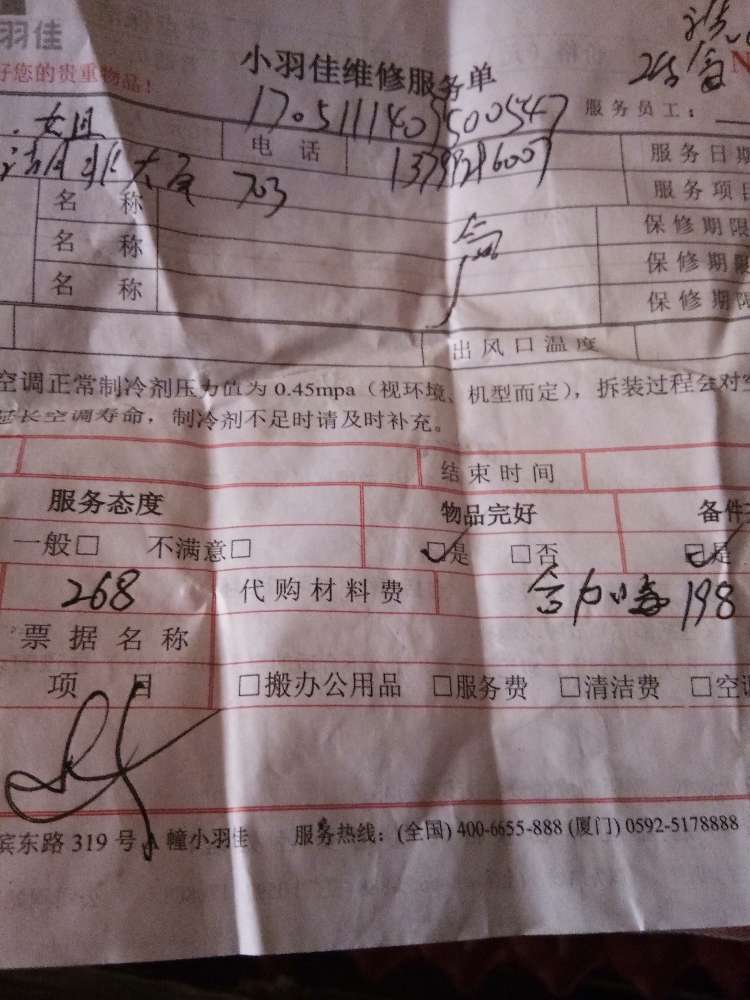 羽佳
好您的贵重物品！
小羽佳维修服务单
N
服务员工：
女姐
电话
服务日期
703
服务项目
名称
保修期限
名称
保修期限
名称
保修期限
出风口温度
空调正常制冷剂压力值为 0.45mpa（视环境、机型而定），拆装过程会对空
延长空调寿命，制冷剂不足时请及时补充。
结束时间
服务态度 物品完好 备件
一般□ 不满意□ ☑是 □否 ☑是
268 代购材料费 198
票据名称
项目 □搬办公用品 □服务费 □清洁费 □空调
滨东路 319 号 A 幢小羽佳 服务热线：(全国) 400-6655-888 (厦门) 0592-5178888